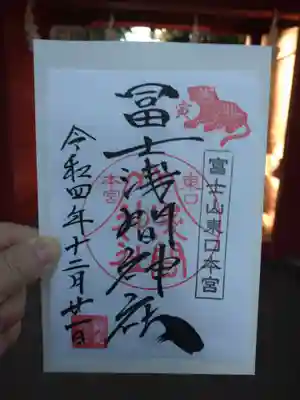 寅
富士山東口本宮
冨士浅間神社
東口
本宮
令和四年十二月廿一日